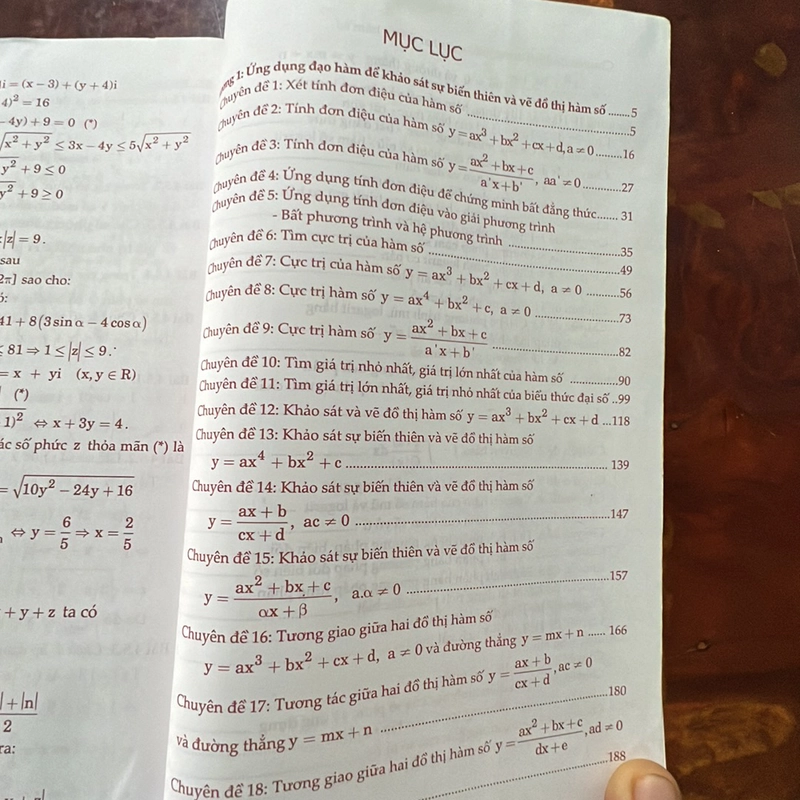 i = (x − 3) + (y + 4)i
4)² = 16
− 4y) + 9 = 0 (*)
√(x² + y²) ≤ 3x − 4y ≤ 5√(x² + y²)
y² + 9 ≤ 0
y² + 9 ≥ 0
|z| = 9.
sau
2π] sao cho:
41 + 8(3sinα − 4cosα)
≤ 81 ⇒ 1 ≤ |z| ≤ 9.
= x + yi (x, y ∈ R)
(*)
1)² ⇔ x + 3y = 4.
ác số phức z thỏa mãn (*) là
= √(10y² − 24y + 16)
⇔ y = 6/5 ⇒ x = 2/5
+ y + z ta có
| + |n|
2
ra:
MỤC LỤC
1: Ứng dụng đạo hàm để khảo sát sự biến thiên và vẽ đồ thị hàm số ........5
Chuyên đề 1: Xét tính đơn điệu của hàm số ........5
Chuyên đề 2: Tính đơn điệu của hàm số y = ax³ + bx² + cx + d, a ≠ 0 ........16
Chuyên đề 3: Tính đơn điệu của hàm số y = (ax² + bx + c)/(a'x + b'), aa' ≠ 0 ........27
Chuyên đề 4: Ứng dụng tính đơn điệu để chứng minh bất đẳng thức....... 31
Chuyên đề 5: Ứng dụng tính đơn điệu vào giải phương trình
- Bất phương trình và hệ phương trình ........35
Chuyên đề 6: Tìm cực trị của hàm số ........49
Chuyên đề 7: Cực trị của hàm số y = ax³ + bx² + cx + d, a ≠ 0 ........56
Chuyên đề 8: Cực trị hàm số y = ax⁴ + bx² + c, a ≠ 0 ........73
Chuyên đề 9: Cực trị hàm số y = (ax² + bx + c)/(a'x + b') ........82
Chuyên đề 10: Tìm giá trị nhỏ nhất, giá trị lớn nhất của hàm số ........90
Chuyên đề 11: Tìm giá trị lớn nhất, giá trị nhỏ nhất của biểu thức đại số ..99
Chuyên đề 12: Khảo sát và vẽ đồ thị hàm số y = ax³ + bx² + cx + d ...118
Chuyên đề 13: Khảo sát sự biến thiên và vẽ đồ thị hàm số
y = ax⁴ + bx² + c ........ 139
Chuyên đề 14: Khảo sát sự biến thiên và vẽ đồ thị hàm số
y = (ax + b)/(cx + d), ac ≠ 0 ........147
Chuyên đề 15: Khảo sát sự biến thiên và vẽ đồ thị hàm số
y = (ax² + bx + c)/(αx + β), a.α ≠ 0 ........157
Chuyên đề 16: Tương giao giữa hai đồ thị hàm số
y = ax³ + bx² + cx + d, a ≠ 0 và đường thẳng y = mx + n ...... 166
Chuyên đề 17: Tương tác giữa hai đồ thị hàm số y = (ax + b)/(cx + d), ac ≠ 0
và đường thẳng y = mx + n ........180
Chuyên đề 18: Tương giao giữa hai đồ thị hàm số y = (ax² + bx + c)/(dx + e), ad ≠ 0
........188